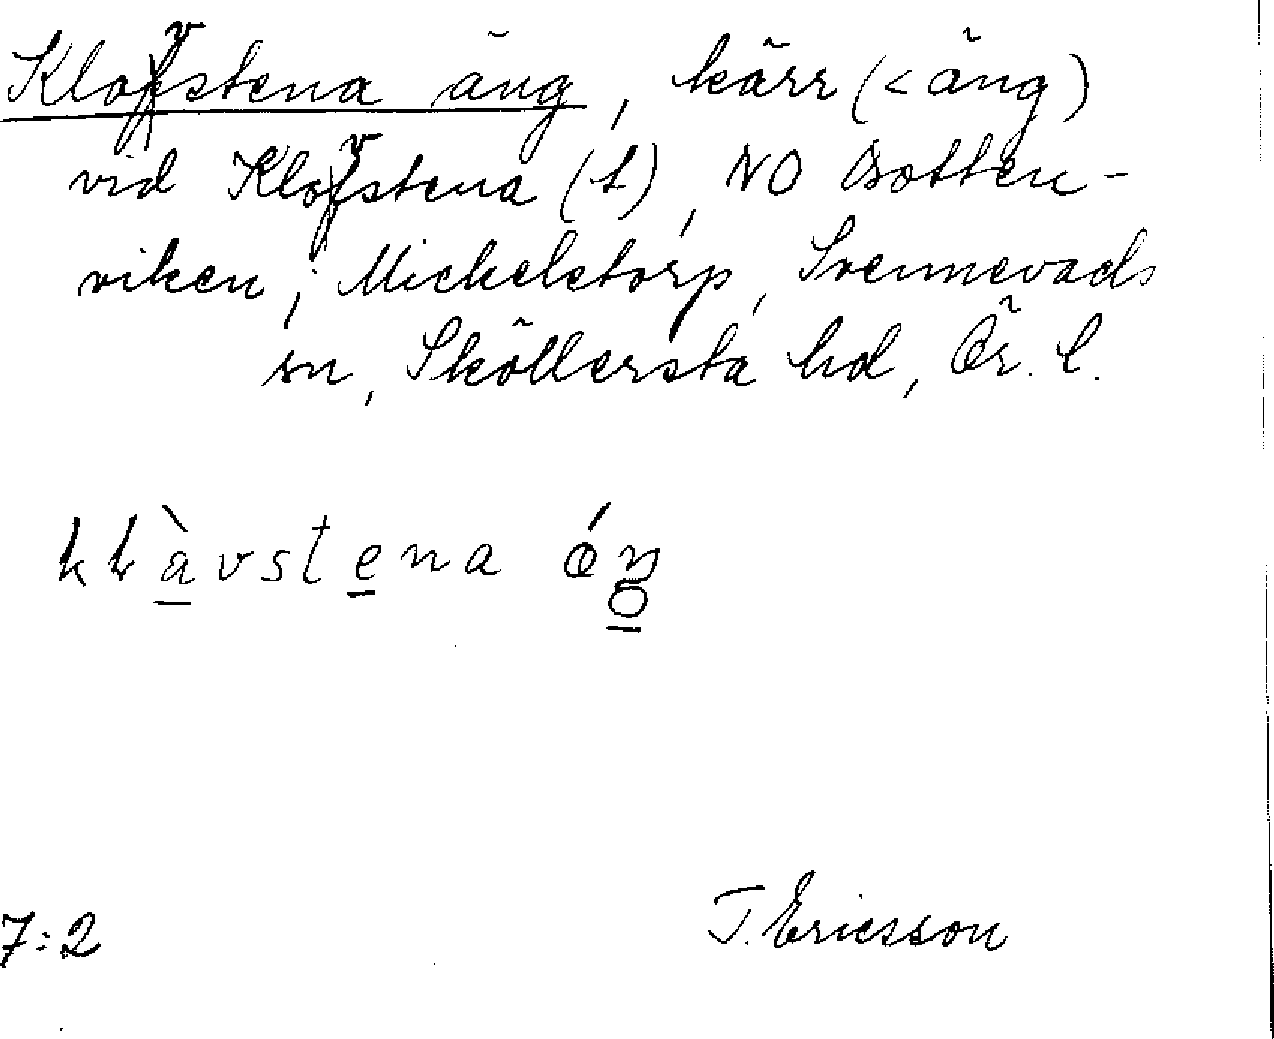 Klovstena äng, kärr (< äng)
vid Klovstena (t), NO Botten-
viken; Mickelstorp, Svennevads
sn, Sköllersta hd, Ör. l.
klàvstena
7:2
T. Ericsson